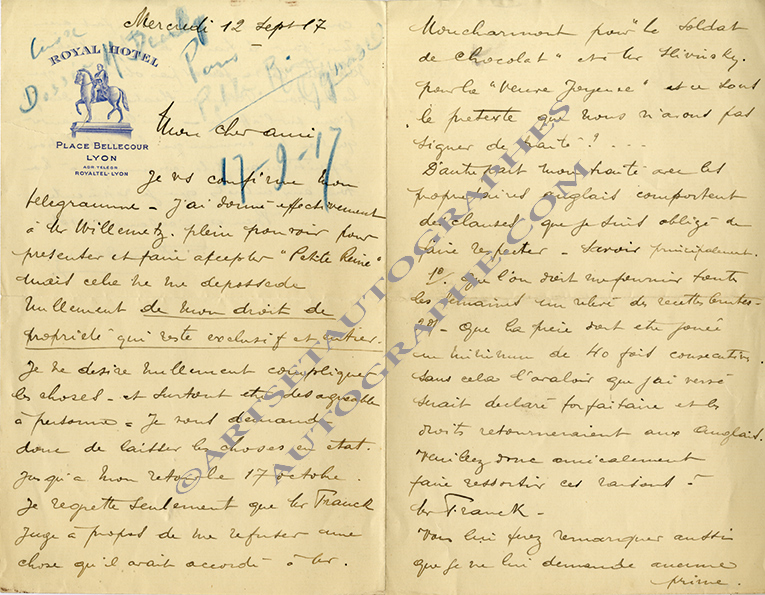 Mercredi 12 Sept 17
Dossier
Paris
Petite
Gymnase
ROYAL HOTEL
PLACE BELLECOUR
LYON
ADR. TELEGR.
ROYALTEL-LYON
17-9-17
Mon cher ami
Je vs confirme mon
telegramme - j'ai donné effectivement
à Mr Willemetz. plein pouvoir pour
presenter et faire accepter "Petite Reine"
mais cela ne me depossede
nullement de mon droit de
propriété qui reste exclusif et entier.
Je ne desire nullement compliquer
les choses - et surtout etre desagreable
à personne - Je vous demande
donc de laisser les choses en etat.
jusqu'a mon retour le 17 octobre.
Je regrette seulement que Mr Franck
juge à propos de me refuser une
chose qu'il avait accordé - à Mr.
Moncharmont pour "le Soldat
de Chocolat" et à Mr Slivinsky.
pour la "Veuve Joyeuse" et ce sous
le pretexte que nous n'avons pas
signer de traité? - - -
D'autre part mon traité avec les
propriétaires anglais comportent
des clauses que je suis obligé de
faire respecter - savoir principalement.
1º/- que l'on doit me fournir toutes
les semaines un relevé des recettes brutes-
2º/- Que la pièce doit etre jouée
un minimum de 40 fois consecutives
sans cela l'avaloir que j'ai versé
serait declaré forfaitaire et les
droits retourneraient aux Anglais.
Veuillez donc amicalement
faire ressortir ces raisons à
Mr Franck -
Vous lui ferez remarquer aussi
que je ne lui demande aucune
prime.
©ARTSETAUTOGRAPHES
AUTOGRAPHE.COM